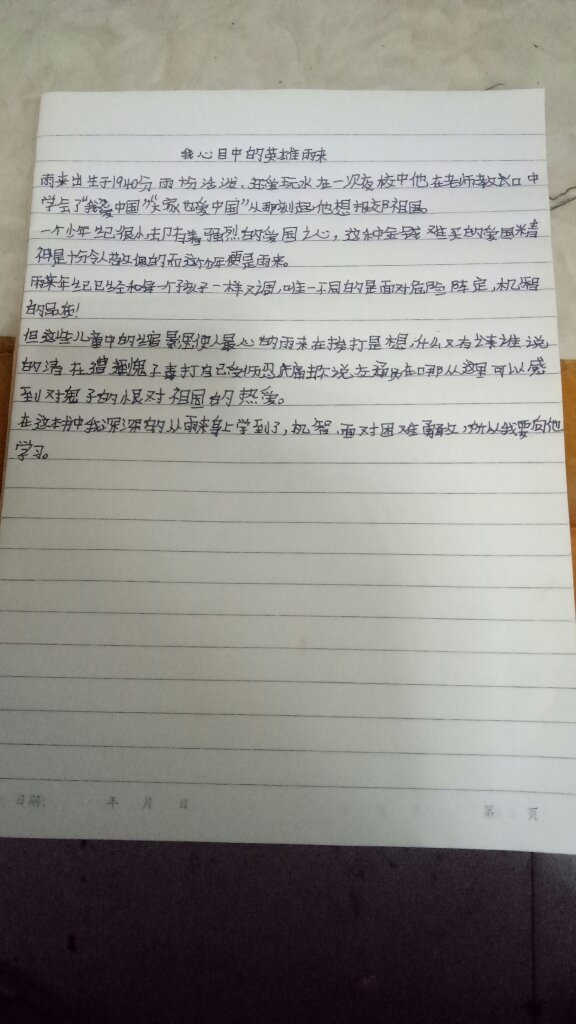 我心目中的英雄雨来
雨来出生于1940 雨 活泼、还爱玩水在一次夜校中他在老师教 口中
学会了“我爱中国”“大家也爱中国”从那刻起他想报 祖国。
一个少年 纪很小却有着强烈的爱国之心，这种金钱难买的爱国精
神是十分令人敬佩的而这少年便是雨来。
雨来年纪 和每一个孩子一样 调，唯一不同的是面对危险 定，机智
的 ！
但这些儿童中的 最 使人 心的雨来在挨打是想，什么 有 谁 说
的清在遭到鬼子毒打自己 不说 在哪从这里可以感
到对鬼子的恨对祖国的热爱。
在这本书中我深深的从雨来身上学到了，机智、面对困难勇敢，所以我要向他
学习。
日期： 年 月 日
第 页